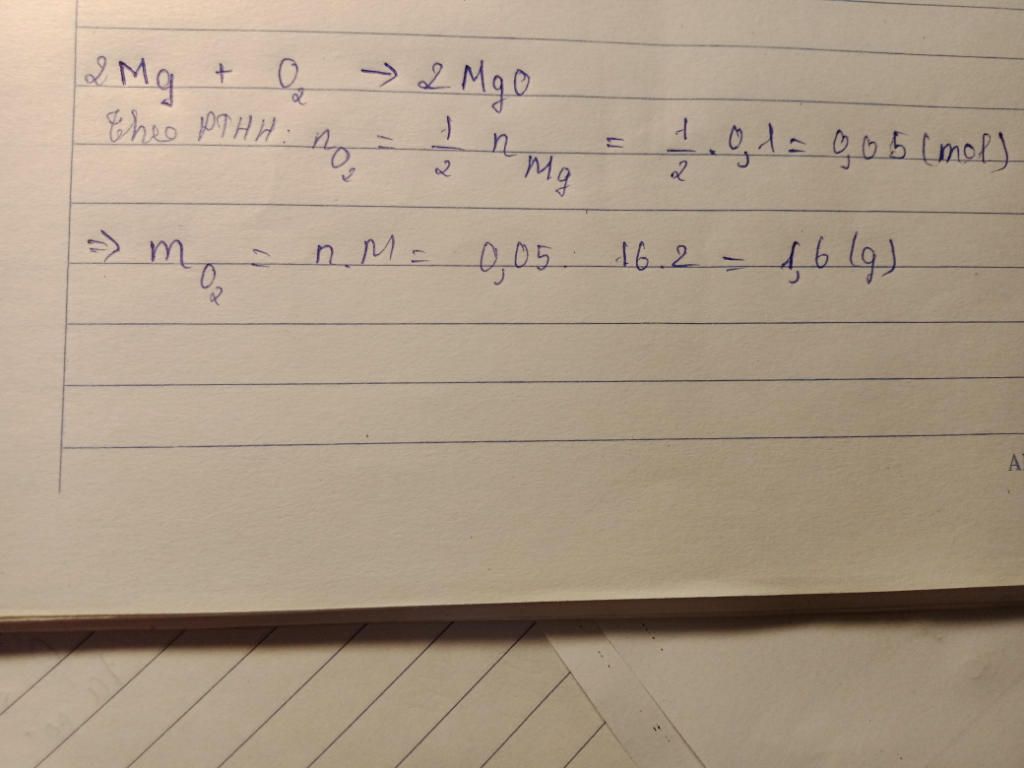 2Mg + O₂ → 2MgO
theo PTHH: n_O₂ = 1/2 n_Mg = 1/2 . 0,1 = 0,05 (mol)
⇒ m_O₂ = n.M = 0,05. 16.2 = 1,6 (g)